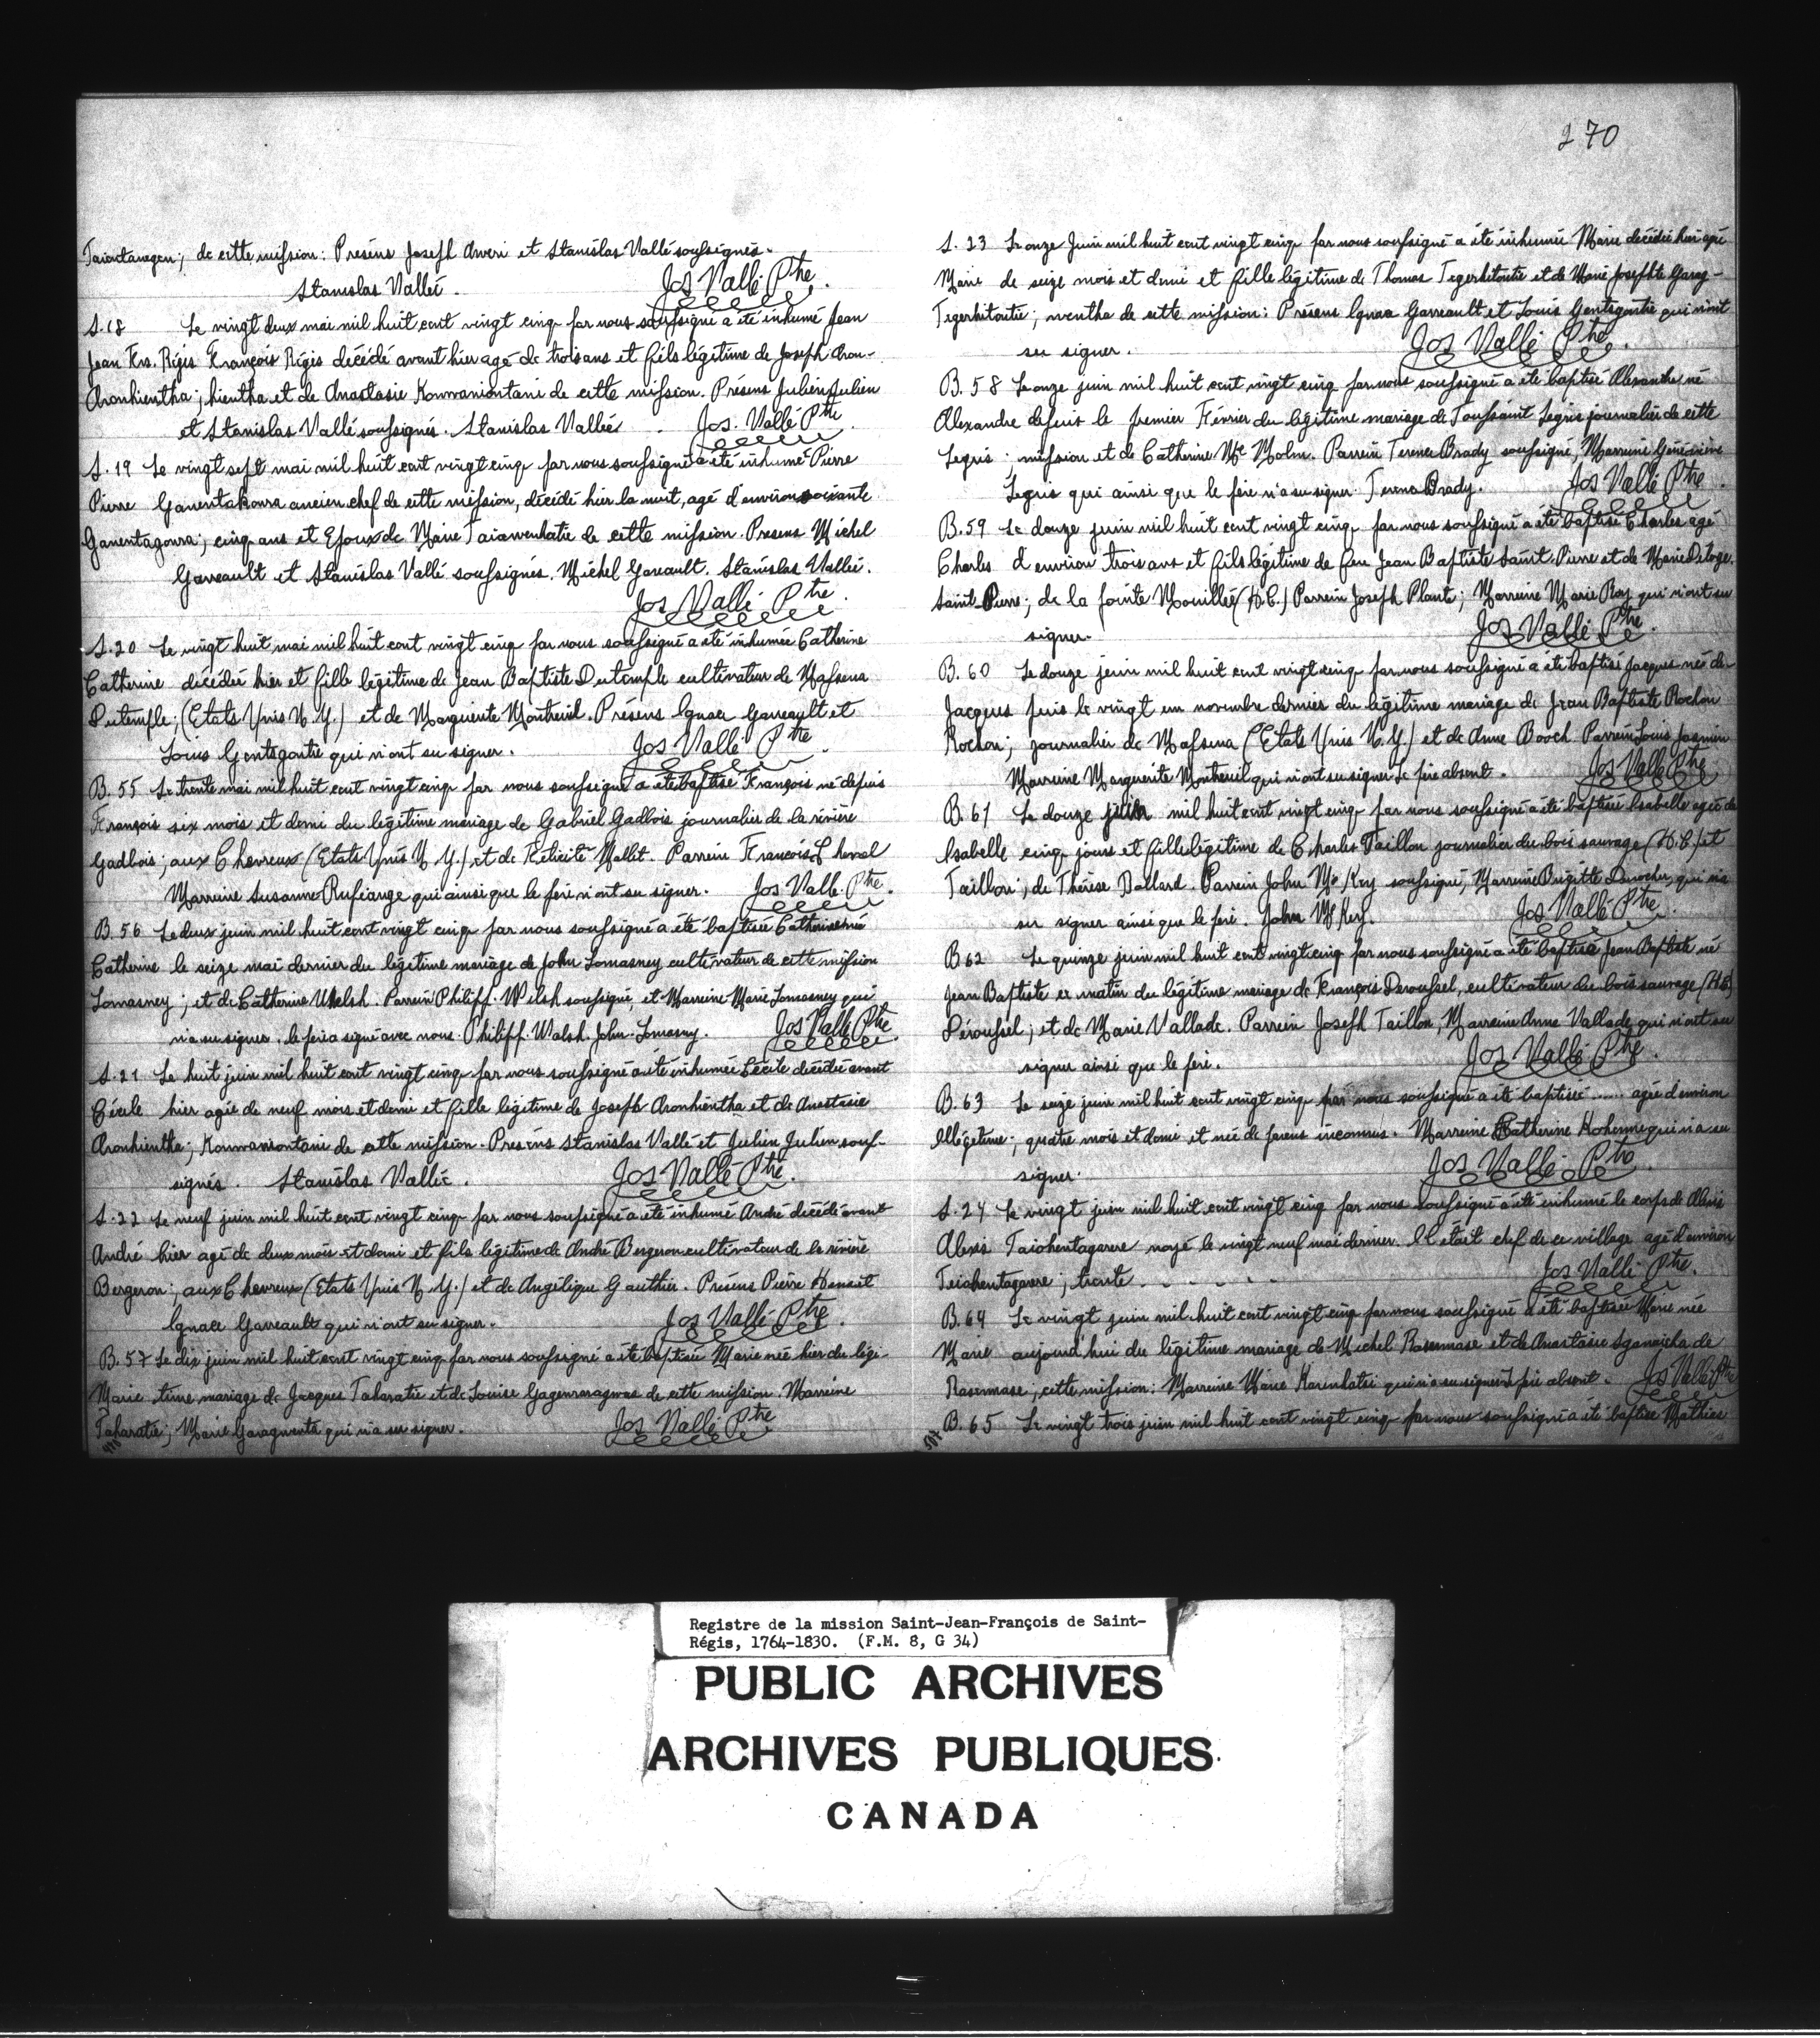 270
Taiontanegen; de cette mission: Présens Joseph Aneri et Stanislas Vallé soussignés.
Stanislas Vallé. Jos Vallé Ptre.
S.18 Le vingt deux mai mil huit cent vingt cinq par nous soussigné a été inhumé Jean
Jean Frs. Régis François Régis décédé avant hier agé de trois ans et fils légitime de Joseph Aron-
Aronhientha; hientha et de Anastasie Konwaniontani de cette mission. Présens Julien Julien
et Stanislas Vallé soussignés. Stanislas Vallée. Jos. Vallé Ptre.
S.19 Le vingt sept mai mil huit cent vingt cinq par nous soussigné a été inhumé Pierre
Pierre Ganentakowa ancien chef de cette mission, décédé hier la nuit, agé d'environ soixante
Ganentagowa; cinq ans et Epoux de Marie Taiawenhatie de cette mission. Presens Michel
Gareault et Stanislas Vallé soussignés. Michel Gareault. Stanislas Vallée.
Jos Vallé Ptre.
S.20 Le vingt huit mai mil huit cent vingt cinq par nous soussigné a été inhumée Catherine
Catherine décédée hier et fille légitime de Jean Baptiste Dutemple cultivateur de Massena
Dutemple; (Etats Unis N.Y.) et de Marguerite Montreuil. Présens Ignace Garreault et
Louis Gentsgontie qui n'ont su signer. Jos Vallé Ptre.
B.55 Le trente mai mil huit cent vingt cinq par nous soussigné a été baptisé François né depuis
François six mois et demi du légitime mariage de Gabriel Gadbois journalier de la rivière
Gadbois; aux Chevreux (Etats Unis N.Y.) et de Félicité Mallet. Parrein François Lheval
Marreine Susanne Rufiange qui ainsi que le père n'ont su signer. Jos Vallé. Ptre.
B.56 Le deux juin mil huit cent vingt cinq par nous soussigné a été baptisée Catherine née
Catherine le seize mai dernier du légitime mariage de John Lomasney cultivateur de cette mission
Lomasney; et de Catherine Welsh. Parrein Philipp. Welsh soussigné, et Marreine Marie Lomasney qui
n'a su signer. le père a signé avec nous. Philipp. Walsh. John. Lomasny. Jos Vallé Ptre.
S.21 Le huit juin mil huit cent vingt cinq par nous soussigné a été inhumée Cécile décédée avant
Cécile hier agée de neuf mois et demi et fille légitime de Joseph Aronhientha et de Anastasie
Aronhientha; Konwaniontani de cette mission. Présens Stanislas Vallé et Julien Julien sous-
signés. Stanislas Vallée. Jos Vallé Ptre.
S.22 Le neuf juin mil huit cent vingt cinq par nous soussigné a été inhumé André décédé avant
André hier agé de deux mois et demi et fils légitime de André Bergeron cultivateur de la rivière
Bergeron; aux Chevreux (Etats Unis N.Y.) et de Angélique Gauthier. Présens Pierre Benoit
Ignace Garreault qui n'ont su signer. Jos Vallé Ptre.
B.57 Le dix juin mil huit cent vingt cinq par nous soussigné a été baptisée Marie née hier du légi-
Marie time mariage de Jacques Taharatie et de Louise Gagenraragwas de cette mission. Marreine
Taharatie; Marie Garagwenta qui n'a su signer. Jos Vallé Ptre
S.23 Le onze Juin mil huit cent vingt cinq par nous soussigné a été inhumée Marie décédée hier agée
Marie de seize mois et demi et fille légitime de Thomas Tegerhitontie et de Marie Josephte Garag-
Tegerhitontie; wentha de cette mission: Présens Ignace Garreault et Louis Gentsgontie qui n'ont
su signer. Jos Vallé Ptre.
B.58 Le onze juin mil huit cent vingt cinq par nous soussigné a été baptisé Alexandre né
Alexandre depuis le premier Février du légitime mariage de Toussaint Legris journalier de cette
Legris; mission et de Catherine Mc Molm. Parrein Terence Brady soussigné, Marreine Géneviève
Legris qui ainsi que le père n'a su signer. Terence Brady. Jos Vallé Ptre.
B.59 Le douze juin mil huit cent vingt cinq par nous soussigné a été baptisé Charles agé
Charles d'environ trois ans et fils légitime de feu Jean Baptiste Saint-Pierre et de Marie Deloge.
Saint-Pierre; de la pointe Mouillée (H.C.) Parrein Joseph Plante; Marreine Marie Roy qui n'ont su
signer. Jos Vallé Ptre.
B.60 Le douze juin mil huit cent vingt cinq par nous soussigné a été baptisé Jacques né de-
Jacques puis le vingt un novembre dernier du légitime mariage de Jean Baptiste Rochon
Rochon; journalier de Massena (Etats Unis N.Y.) et de Anne Booch. Parrein Louis Jasmin
Marreine Marguerite Montreuil qui n'ont su signer le père absent. Jos Vallé Ptre
B.61 Le douze juin mil huit cent vingt cinq par nous soussigné a été baptisée Isabelle agée de
Isabelle cinq jours et fille légitime de Charles Taillon journalier du bois sauvage (H.C.) et
Taillon; de Thérèse Dallard. Parrein John Mc Key soussigné, Marreine Brigitte Durocher, qui n'a
su signer ainsi que le père. John Mc Key. Jos Vallé Ptre.
B.62 Le quinze juin mil huit cent vingt cinq par nous soussigné a été baptisé Jean Baptiste né
Jean Baptiste ce matin du légitime mariage de François Deroussel, cultivateur du bois sauvage (H.C)
Déroussel; et de Marie Vallade. Parrein Joseph Taillon, Marreine Anne Vallade qui n'ont su
signer ainsi que le père. Jos Vallé Ptre.
B.63 Le seize juin mil huit cent vingt cinq par nous soussigné a été baptisée ..... agée d'environ
Illégitime; quatre mois et demi et née de parens inconnus. Marreine Catherine Hohenne qui n'a su
signer. Jos Vallé Ptre.
S.24 Le vingt juin mil huit cent vingt cinq par nous soussigné a été inhumé le corps de Alexis
Alexis Taiohentagarere noyé le vingt neuf mai dernier. Il était chef de ce village agé d'environ
Teiohentagarere; trente - - - - - Jos Vallé Ptre.
B.64 Le vingt juin mil huit cent vingt cinq par nous soussigné a été baptisée Marie née
Marie aujourd'hui du légitime mariage de Michel Rasennase et de Anastasie Sganaicha de
Rasennase; cette mission: Marreine Marie Karenhatsi qui n'a su signer le père absent. Jos Vallé Ptre
B.65 Le vingt trois juin mil huit cent vingt cinq par nous soussigné a été baptisé Mathieu
Registre de la mission Saint-Jean-François de Saint-
Régis, 1764-1830. (F.M. 8, G 34)
PUBLIC ARCHIVES
ARCHIVES PUBLIQUES
CANADA